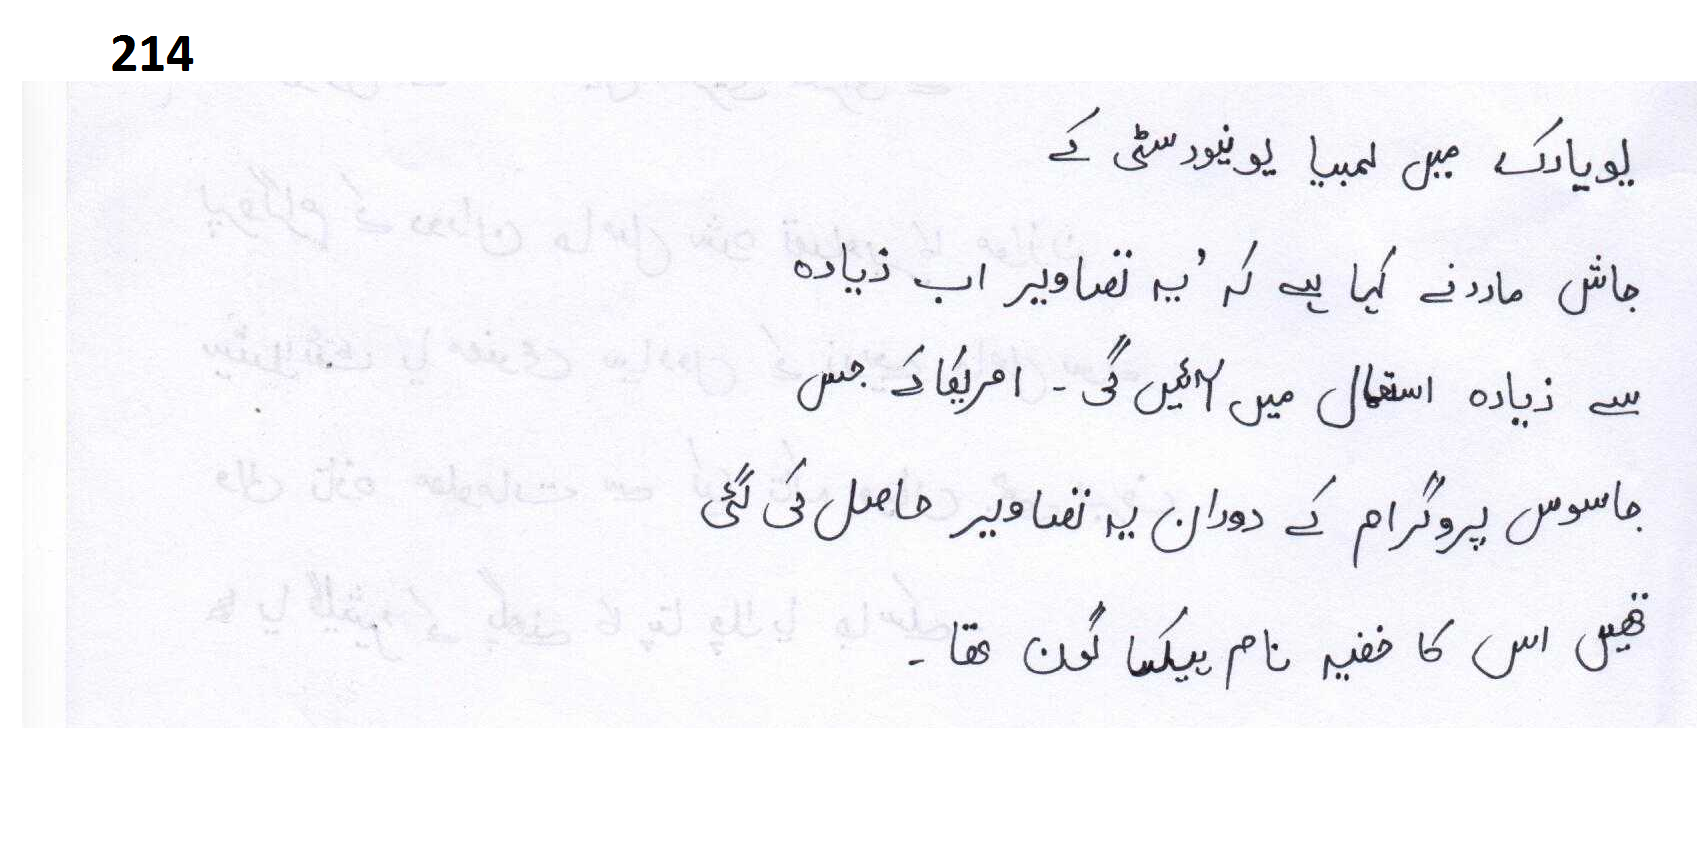 214
یویارک میں لمبیا یونیورسٹی کے
جاش ماررنے کہا ہے کہ 'یہ تصاویر اب زیادہ
سے زیادہ استعمال میں آئیں گی ۔ امریکا کے جس
جاسوس پروگرام کے دوران یہ تصاویر حاصل کی گئی
تھیں اس کا خفیہ نام ہیکسا گون تھا ۔